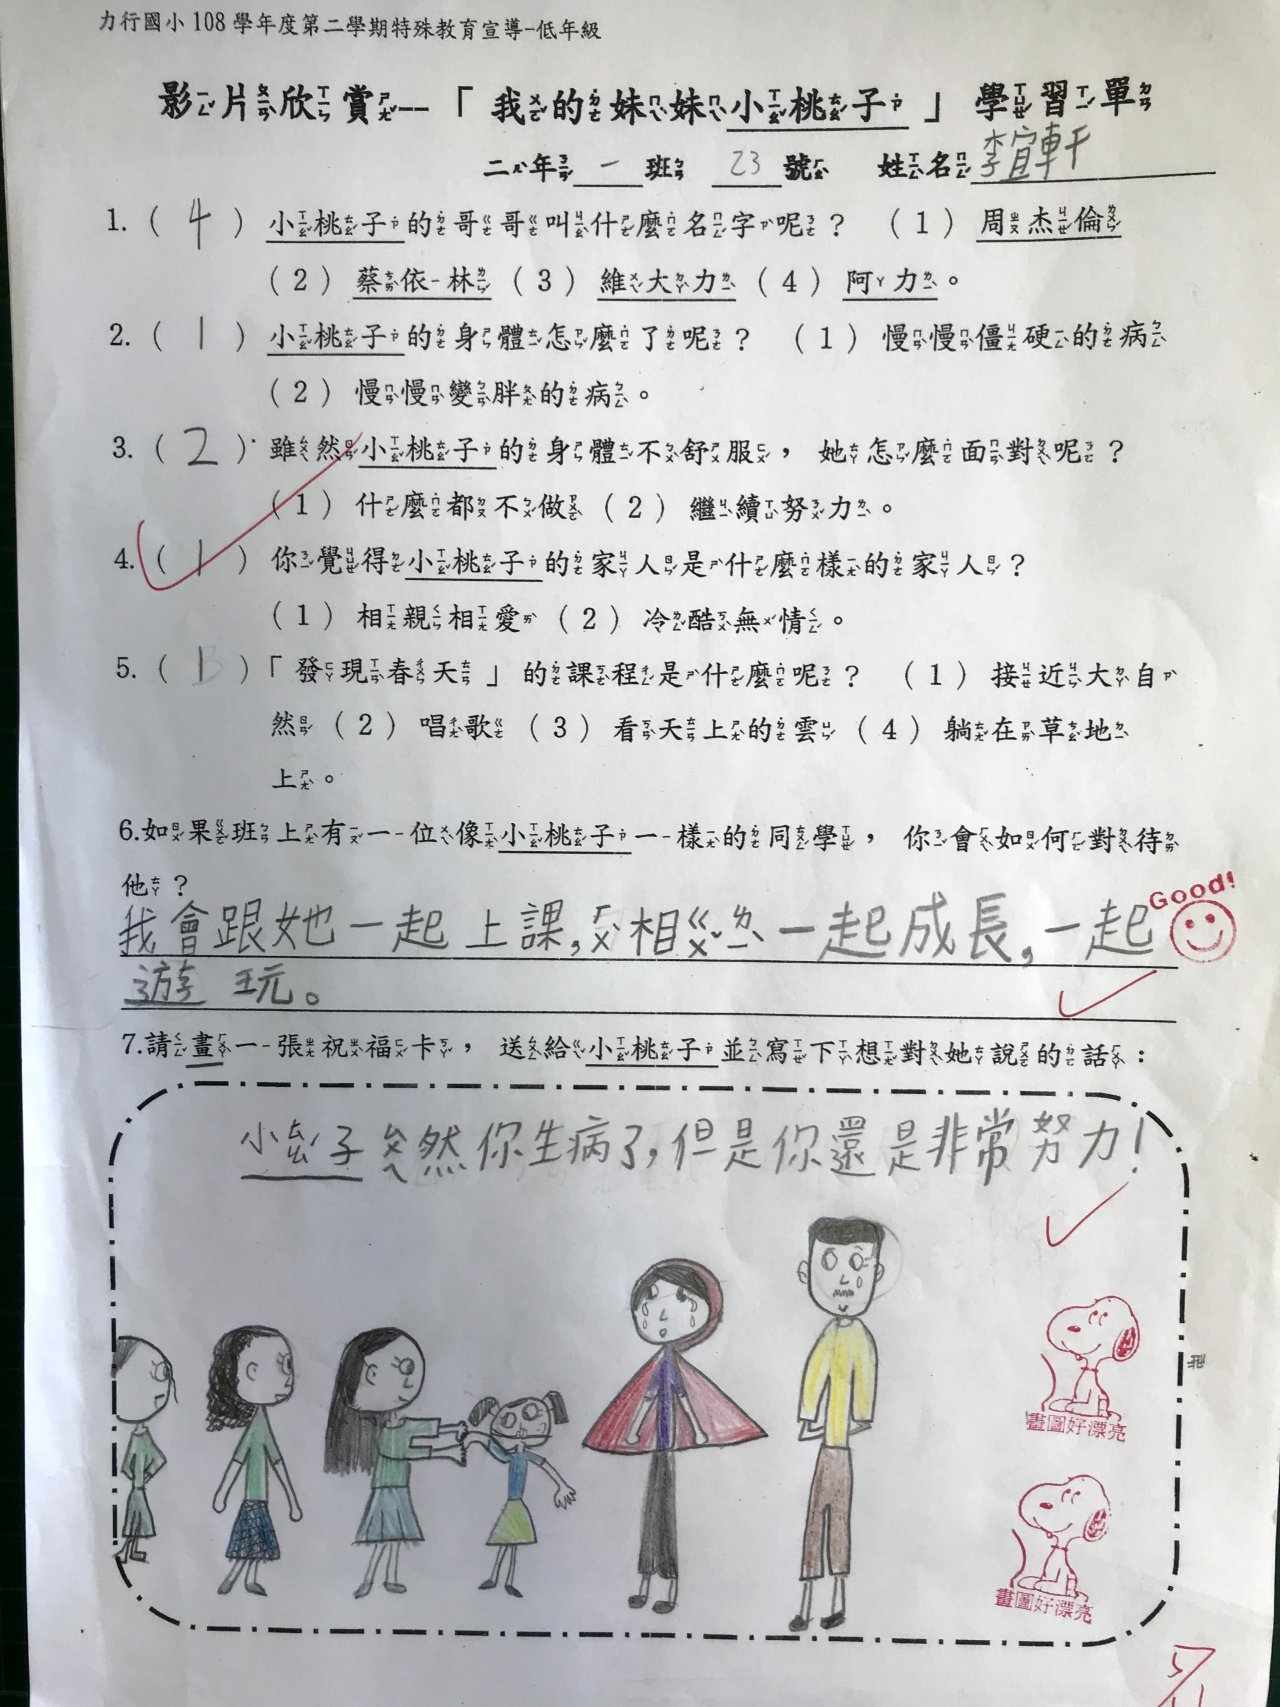 力行國小108學年度第二學期特殊教育宣導-低年級
影片欣賞—「我的妹妹小桃子」學習單
二年一班 23號 姓名李宜軒
1.(4) 小桃子的哥哥叫什麼名字呢? (1) 周杰倫
(2) 蔡依林 (3) 維大力 (4) 阿力。
2.(1) 小桃子的身體怎麼了呢? (1) 慢慢僵硬的病
(2) 慢慢變胖的病。
3.(2) 雖然小桃子的身體不舒服, 她怎麼面對呢?
(1) 什麼都不做 (2) 繼續努力。
4.(1) 你覺得小桃子的家人是什麼樣的家人?
(1) 相親相愛 (2) 冷酷無情。
5.(1)「發現春天」的課程是什麼呢? (1) 接近大自
然 (2) 唱歌 (3) 看天上的雲 (4) 躺在草地
上。
6.如果班上有一位像小桃子一樣的同學, 你會如何對待
他?
我會跟她一起上課,ㄏㄨˋ相ㄍㄨˇㄌㄧˋ一起成長,一起
Good!
遊玩。
7.請畫一張祝福卡, 送給小桃子並寫下想對她說的話:
小ㄊㄠˊ子ㄙㄨㄟ然你生病了,但是你還是非常努力!
畫圖好漂亮
畫圖好漂亮